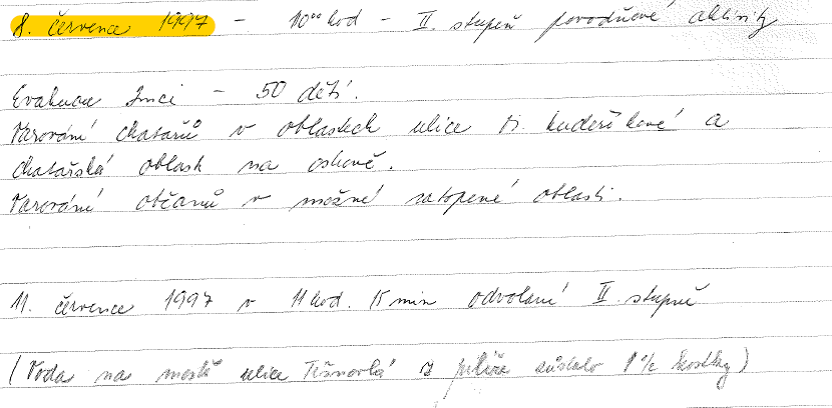 8. července 1997 - 10⁰⁰ hod - II. stupeň povodňové aktivity
Evakuace - 50 dětí.
Varování chatařů v oblastech ulice M. Kudeříkové a
chatařská oblast na ostrově.
Varování občanů v možné zatopené oblasti.
11. července 1997 v 11 hod. 15 min odvolání II. stupně
(Voda na mostě ulice Tišnovská z pilíře zůstalo kostky)